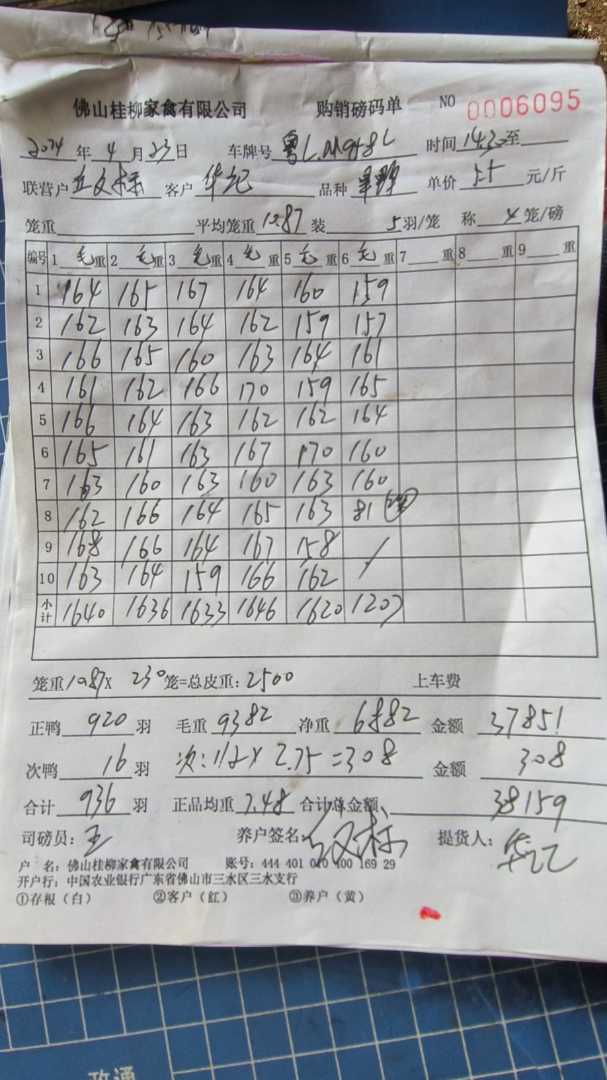 佛山桂柳家禽有限公司 购销磅码单 NO 0006095
2024 年 4 月 23 日 车牌号 粤L.M948L 时间 1430 至
联营户 客户 华记 品种 单价 5.5 元/斤
笼重 平均笼重 10.87 装 5 羽/笼 称 4 笼/磅
编号 1 毛 重 2 毛 重 3 毛 重 4 毛 重 5 毛 重 6 毛 重 7 重 8 重 9 重
1 164 165 167 164 160 159
2 162 163 164 162 159 157
3 166 165 160 163 164 161
4 161 162 166 170 159 165
5 166 164 163 162 162 164
6 165 161 163 167 170 160
7 163 160 163 160 163 160
8 162 166 164 165 163 81
9 168 166 164 167 158 /
10 163 164 159 166 162 /
小计 1640 1636 1633 1646 1620 1207
笼重 10.87 X 230 笼=总皮重: 2500 上车费
正鸭 920 羽 毛重 9382 净重 6882 金额 37851
次鸭 16 羽 次: 112 X 2.75 = 308 金额 308
合计 936 羽 正品均重 7.48 合计总金额 38159
司磅员: 王 养户签名: 提货人: 华记
户 名: 佛山桂柳家禽有限公司 账号: 444 401 010 400 169 29
开户行: 中国农业银行广东省佛山市三水区三水支行
①存根(白) ②客户(红) ③养户(黄)
政通